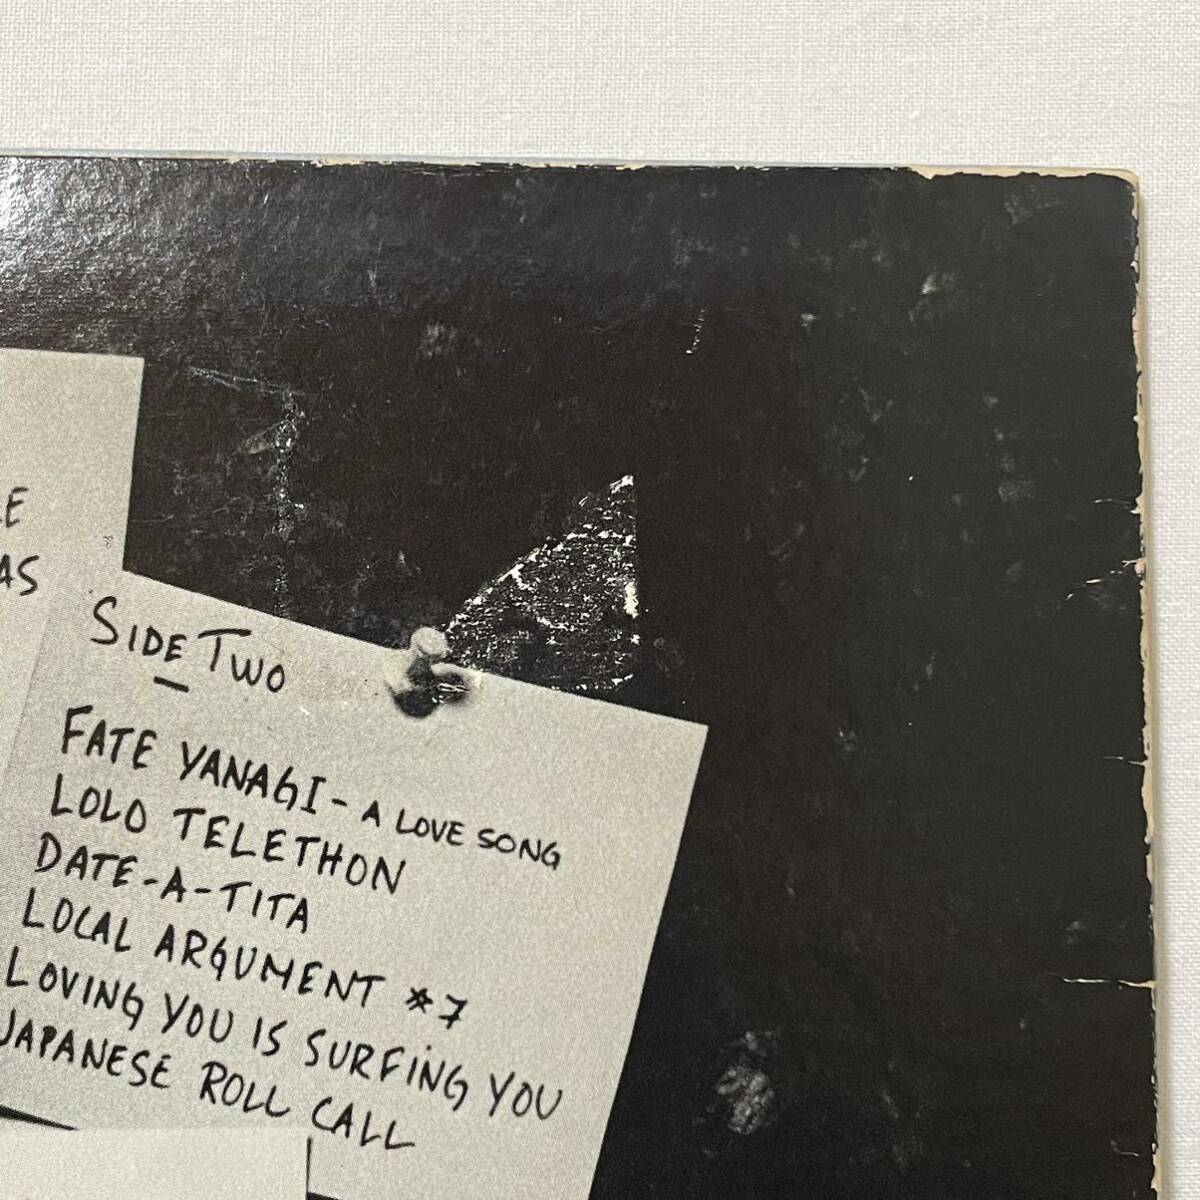 AS
SIDE TWO
FATE YANAGI - A LOVE SONG
LOLO TELETHON
DATE-A-TITA
LOCAL ARGUMENT *7
LOVING YOU IS SURFING YOU
JAPANESE ROLL CALL